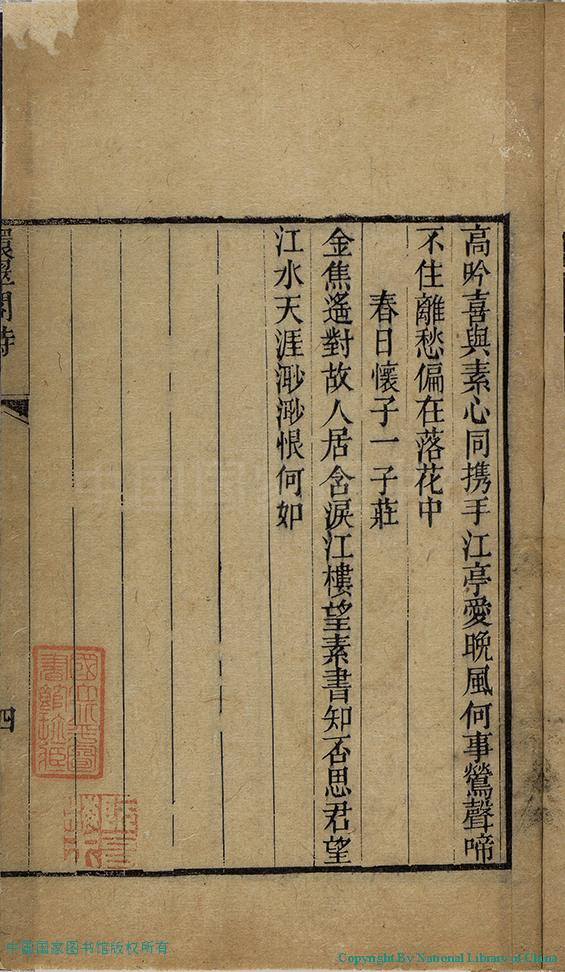 高吟喜與素心同携手江亭愛晩風何事鶯聲啼
不住離愁偏在落花中
春日懷子一子莊
金焦遙對故人居含淚江樓望素書知否思君望
江水天涯渺渺恨何如
四
中国国家图书馆版权所有
Copyright By National Library of China